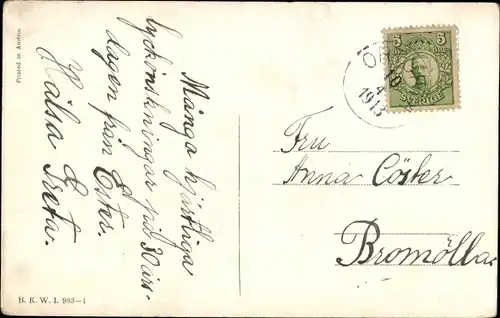 Printed in Austria
Många hjärtliga
lyckönskningar på 30 års-
dagen från Estes.
Hälsa Greta.
B. K. W. I. 983—1
5 5
SVERIGE
10
4
1913
Fru
Anna Cöster
Bromölla